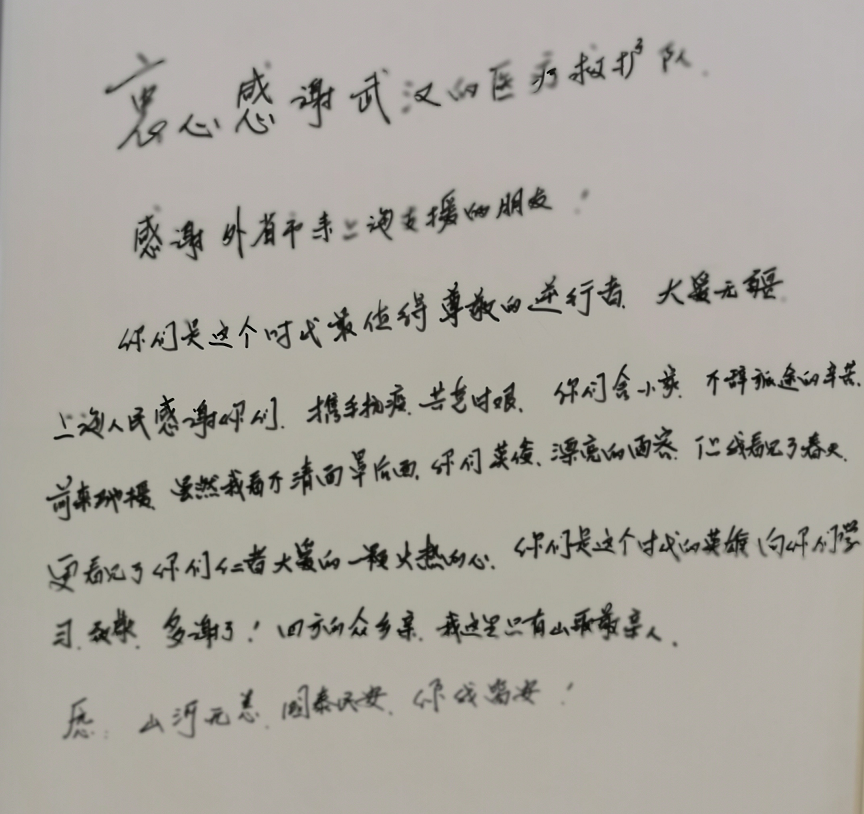 衷心感谢武汉的医疗救护队.
感谢外省市来上海支援的朋友!
你们是这个时代最值得尊敬的逆行者. 大爱无疆.
上海人民感谢你们. 携手抗疫. 共克时艰. 你们舍小家. 不辞旅途的辛苦.
前来驰援. 虽然我看不清面罩后面. 你们英俊. 漂亮的面容. 但我看见了春天.
更看见了你们仁者大爱的一颗火热的心. 你们是这个时代的英雄 向你们学
习. 致敬. 多谢了! 四方的众乡亲. 我这里只有山歌敬亲人.
愿: 山河无恙. 国泰民安. 你我皆安!